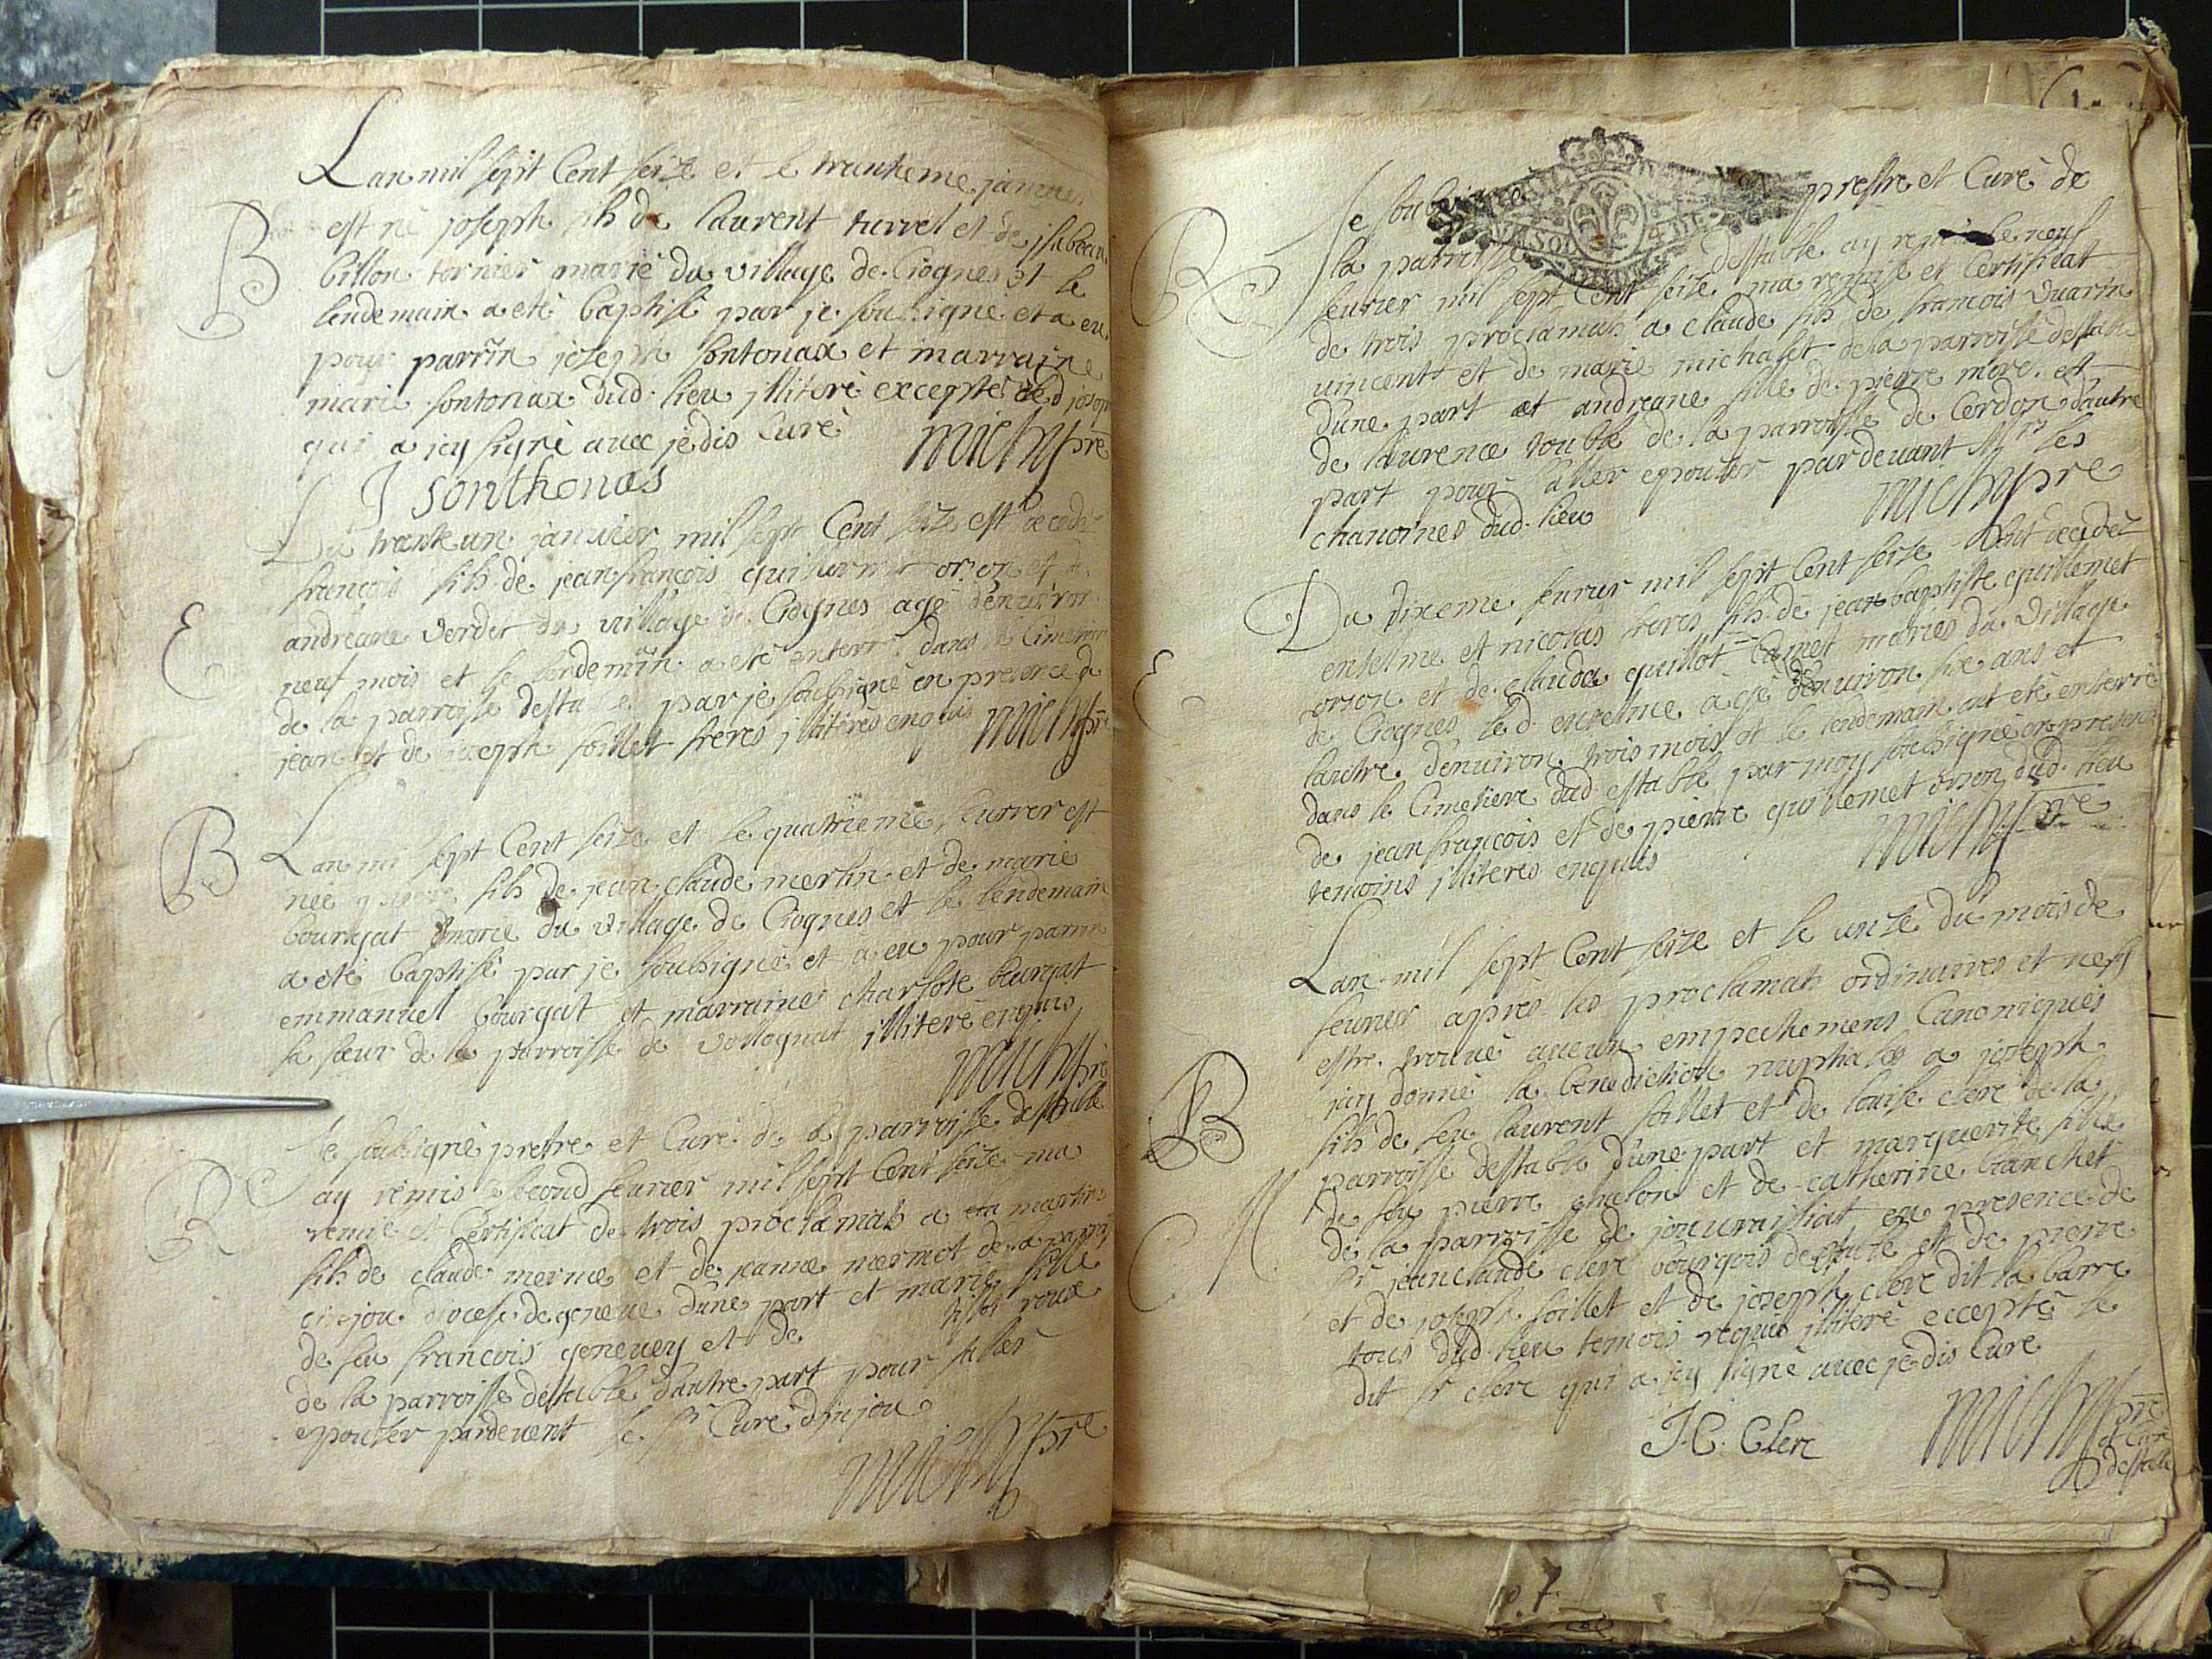 Lan mil sept Cent seize et le trantieme janvier
B
est né joseph fils de laurent turrel et de jsabeau
billon tornier marié du village de Ciognes et le
lendemain a eté baptisé par je soubsigné et a eu
pour parrin joseph sontonax et marraine
marie sontonax dud. lieu illiteré excepté led joseph
qui a icy signé avec je dis Curé michy pre
J sonthonas
Du trante un janvier mil sept Cent seize est decedé
françois fils de jean françois quillermet orson et d
E
andréane verdet du village de Ciognes agé denviron
neuf mois et le lendemain a eté enterré dans le Cimetiere
de la parroisse destable par je soubsigné en presence de
jean et de joseph soillet freres illiterés enquis michy pre
B
Lan mil sept Cent seize et le quatrieme feuvrier est
née fils de jean claude merlin et de marie
bourgat marié du village de Ciognes et le lendemain
a eté baptisé par je soubsigné et a eu pour parrin
emmanuel bourgat et marraine charlote bourgat
sa sœur de la parroisse de vollognat illiteré enquis
michy pre
Je soubsigné pretre et Curé de la parroisse destable
Re
ay remis le second feuvrier mil sept Cent seize ma
remise et Certificat de trois proclamats a martin
fils de claude merme et de jeanne mermet de la parroisse
dinjou diocese de geneue dune part et marie fille
de feu françois genevey et de roux
de la parroisse destable dautre part pour aller
epouser pardevent le sr Curé dinjou
michy pre
Je soubsigné prestre et Curé de
Re
la parroisse destable ay remis le neuf
feuvrier mil sept Cent seize ma remise et Certificat
de trois proclamats a claude fils de françois vuarin
vincent et de marie michalet de la parroisse destable
dune part et andreane fille de pierre more et
de laurence rouble de la parroisse de Cordon dautre
part pour aller epouser pardevant Mrs les
chanoines dud. lieu michy pre
Du dixieme feuvrier mil sept Cent seize sont decedés
entelme et nicolas freres fils de jean baptiste quillemet
E
orson et de clauda quillot Camet mariés du village
de Ciognes, led. entelme agé denviron six ans et
lautre denviron trois mois et le lendemain ont eté enterré
dans le Cimetiere dud. estable par moy soubsigné en presence
de jean françois et de pierre quillemet orson dud. lieu
temoins illiteres enquis michy pre
Lan mil sept Cent seize et le unze du mois de
feuvrier apres les proclamats ordinaires et nesy
estre trouvé aucun empechemens Canoniques
B
jay donné la benediction nuptiales a joseph
fils de feu laurent soillet et de louise clerc de la
parroisse destable dune part et marguerite fille
M
de feu pierre chalon et de catherine branchet
de la parroisse de jouurissiat en presence de
sr jean claude clerc bourgois destable et de pierre
et de joseph soillet et de joseph clerc dit la barre
tous dud. lieu temois requis illiteré exceptés le
dit sr clerc qui a icy signé avec je dis Curé
J. C. Clerc
michy pre
et Curé
destable